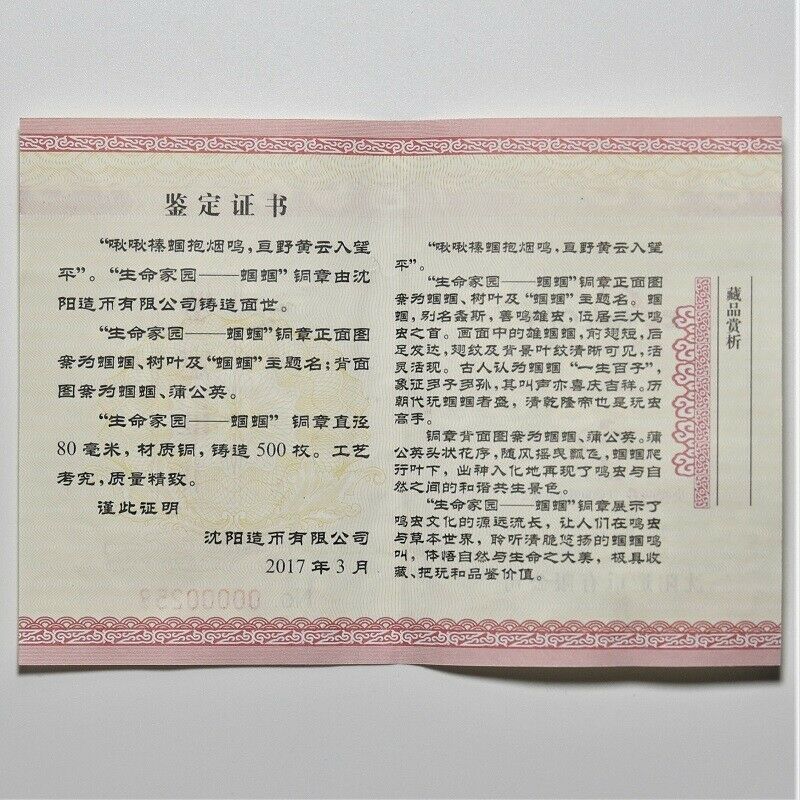 鉴定证书
“啾啾榛蝈抱烟鸣，亘野黄云入望
平”。“生命家园——蝈蝈”铜章由沈
阳造币有限公司铸造面世。
“生命家园——蝈蝈”铜章正面图
案为蝈蝈、树叶及“蝈蝈”主题名；背面
图案为蝈蝈、蒲公英。
“生命家园——蝈蝈”铜章直径
80毫米，材质铜，铸造500枚。工艺
考究，质量精致。
谨此证明
沈阳造币有限公司
2017年3月
“啾啾榛蝈抱烟鸣，亘野黄云入望
平”。
“生命家园——蝈蝈”铜章正面图
案为蝈蝈、树叶及“蝈蝈”主题名。蝈
蝈，别名螽斯，善鸣雄虫，位居三大鸣
虫之首。画面中的雄蝈蝈，前翅短，后
足发达，翅纹及背景叶纹清晰可见，活
灵活现。古人认为蝈蝈“一生百子”，
象征多子多孙，其叫声亦喜庆吉祥。历
朝代玩蝈蝈者盛，清乾隆帝也是玩虫
高手。
铜章背面图案为蝈蝈、蒲公英。蒲
公英头状花序，随风摇曳飘飞，蝈蝈爬
行叶下，出神入化地再现了鸣虫与自
然之间的和谐共生景色。
“生命家园——蝈蝈”铜章展示了
鸣虫文化的源远流长，让人们在鸣虫
与草本世界，聆听清脆悠扬的蝈蝈鸣
叫，体悟自然与生命之大美，极具收
藏、把玩和品鉴价值。
藏品赏析